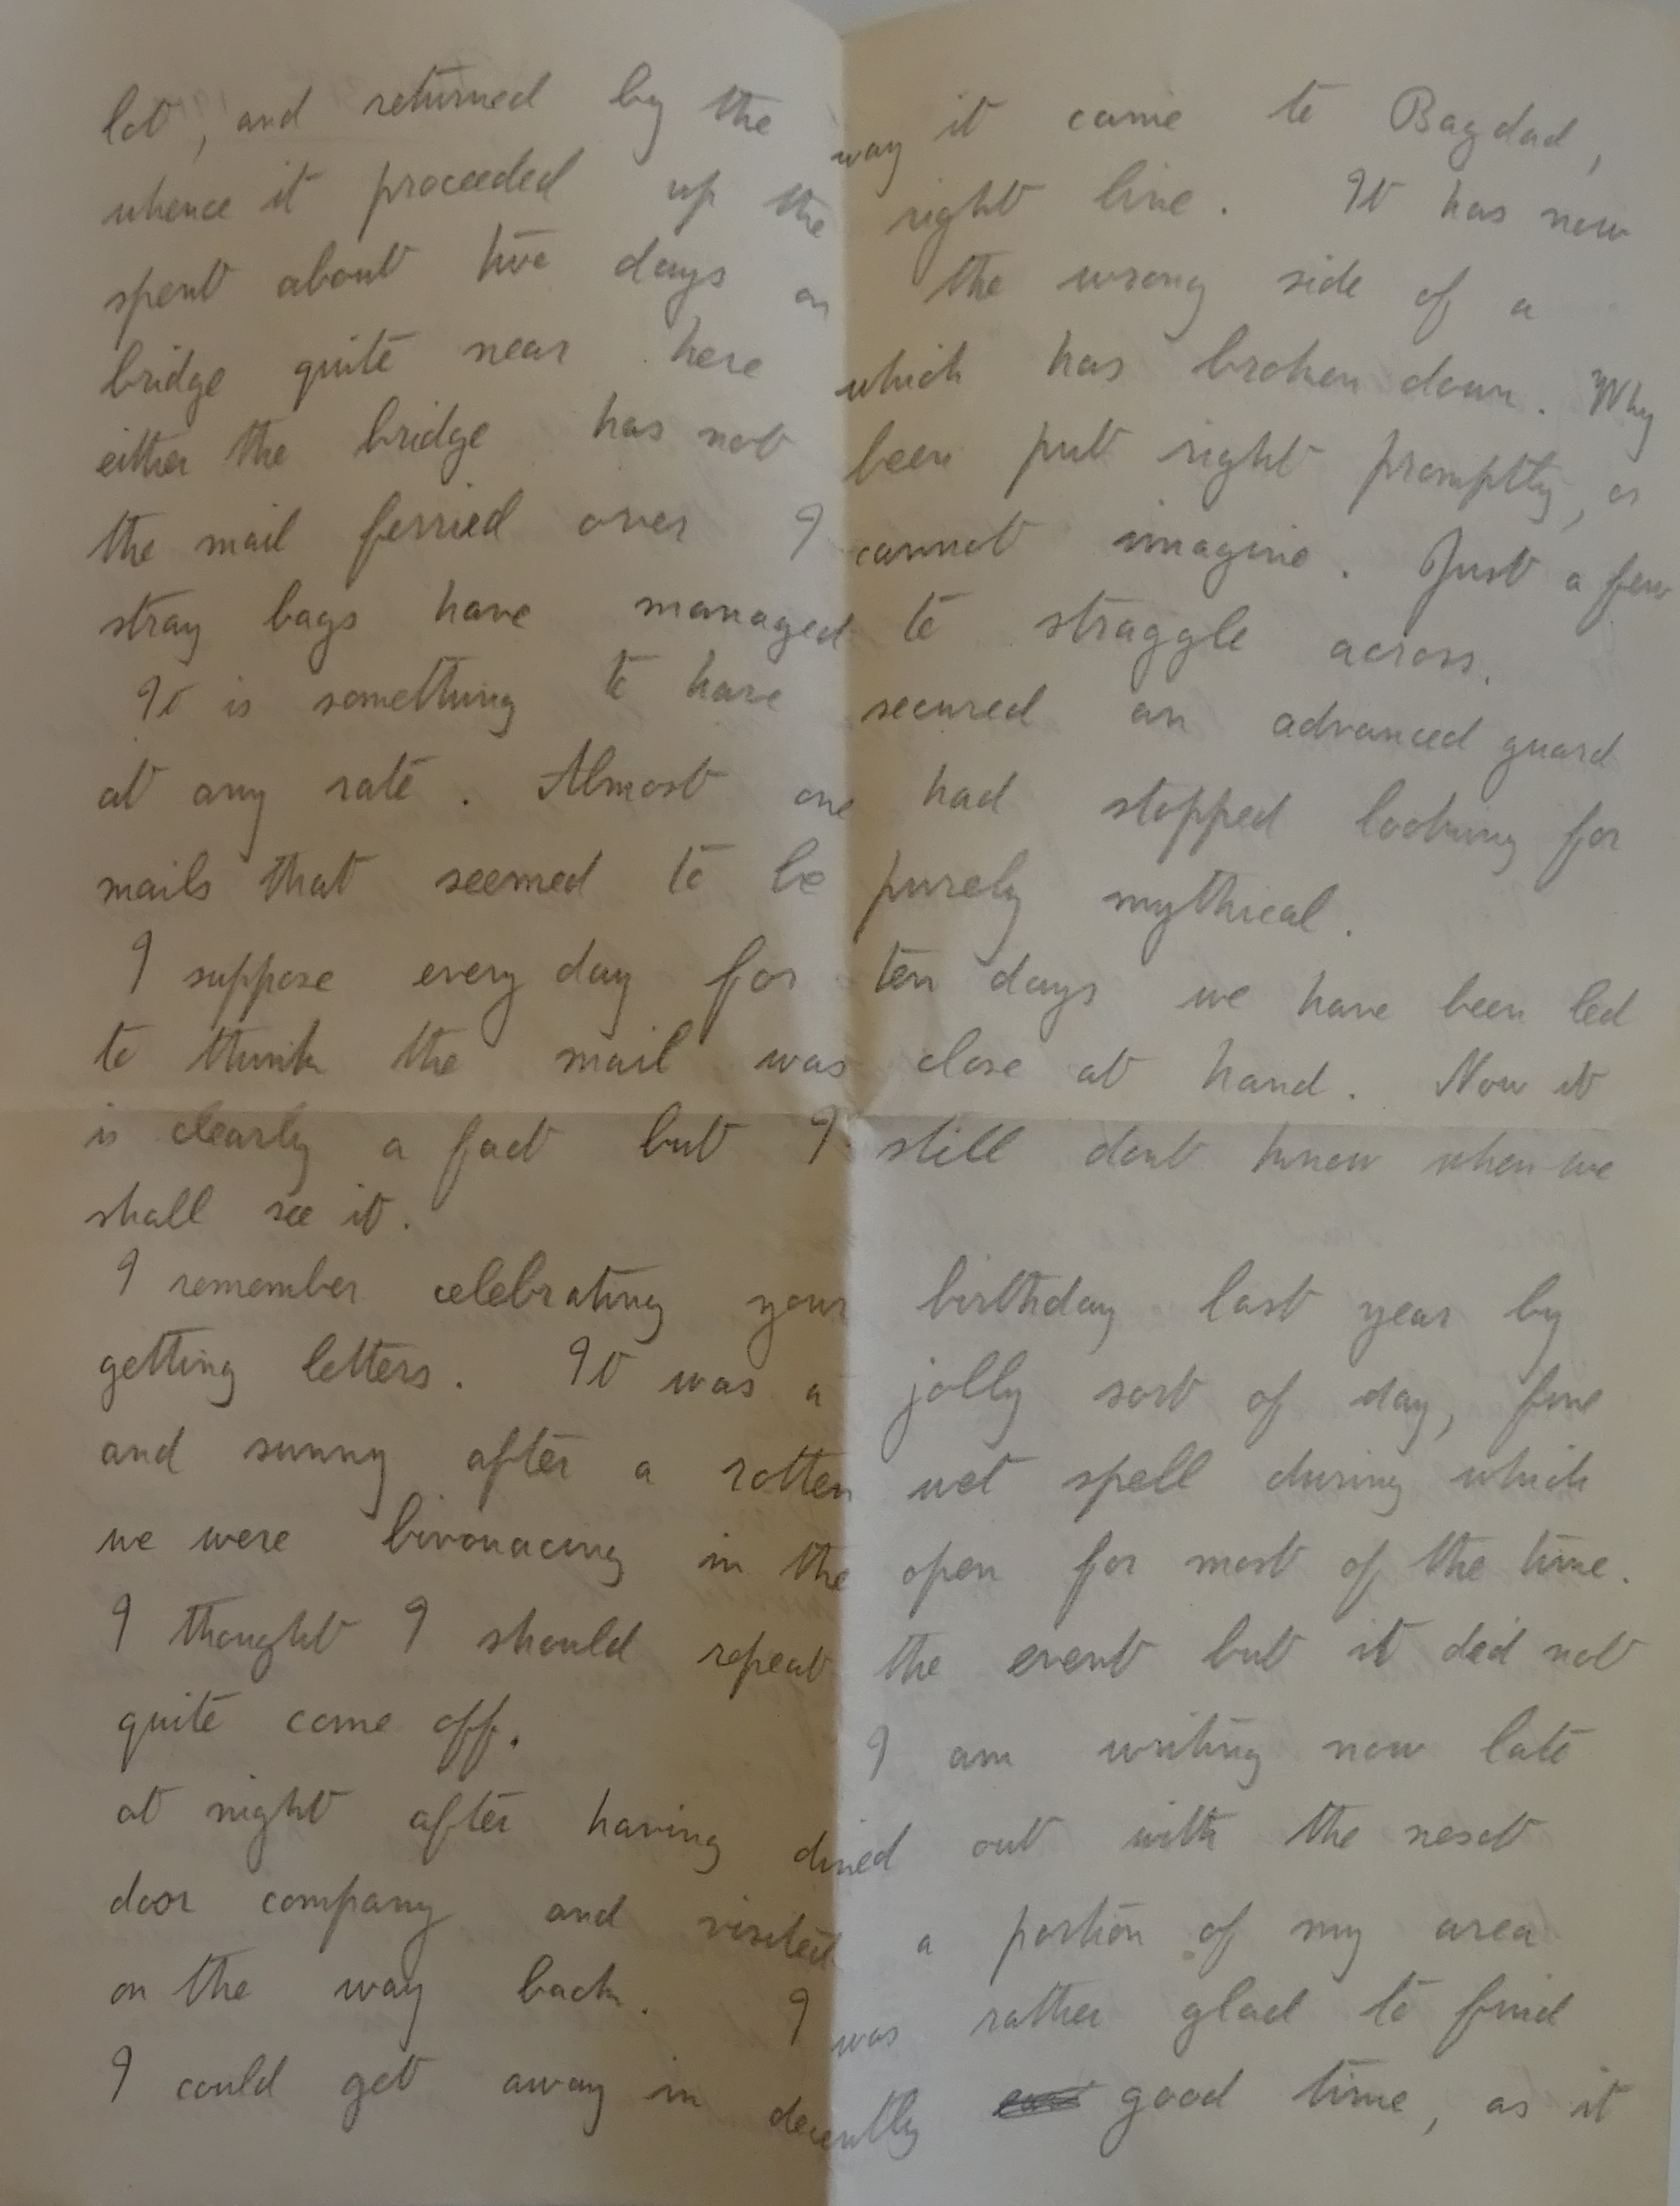 lot, and returned by the way it came to Bagdad,
whence it proceeded up the right line. It has now
spent about two days on the wrong side of a
bridge quite near here which has broken down. Why
either the bridge has not been put right promptly, or
the mail ferried over I cannot imagine. Just a few
stray bags have managed to straggle across.
It is something to have secured an advanced guard
at any rate. Almost one had stopped looking for
mails that seemed to be purely mythical.
I suppose every day for ten days we have been led
to think the mail was close at hand. Now it
is clearly a fact but I still dont know when we
shall see it.
I remember celebrating your birthday last year by
getting letters. It was a jolly sort of day, fine
and sunny after a rotten wet spell during which
we were bivouacing in the open for most of the time.
I thought I should repeat the event but it did not
quite come off. I am writing now late
at night after having dined out with the next
door company and visited a portion of my area
on the way back. I was rather glad to find
I could get away in decently good time, as it